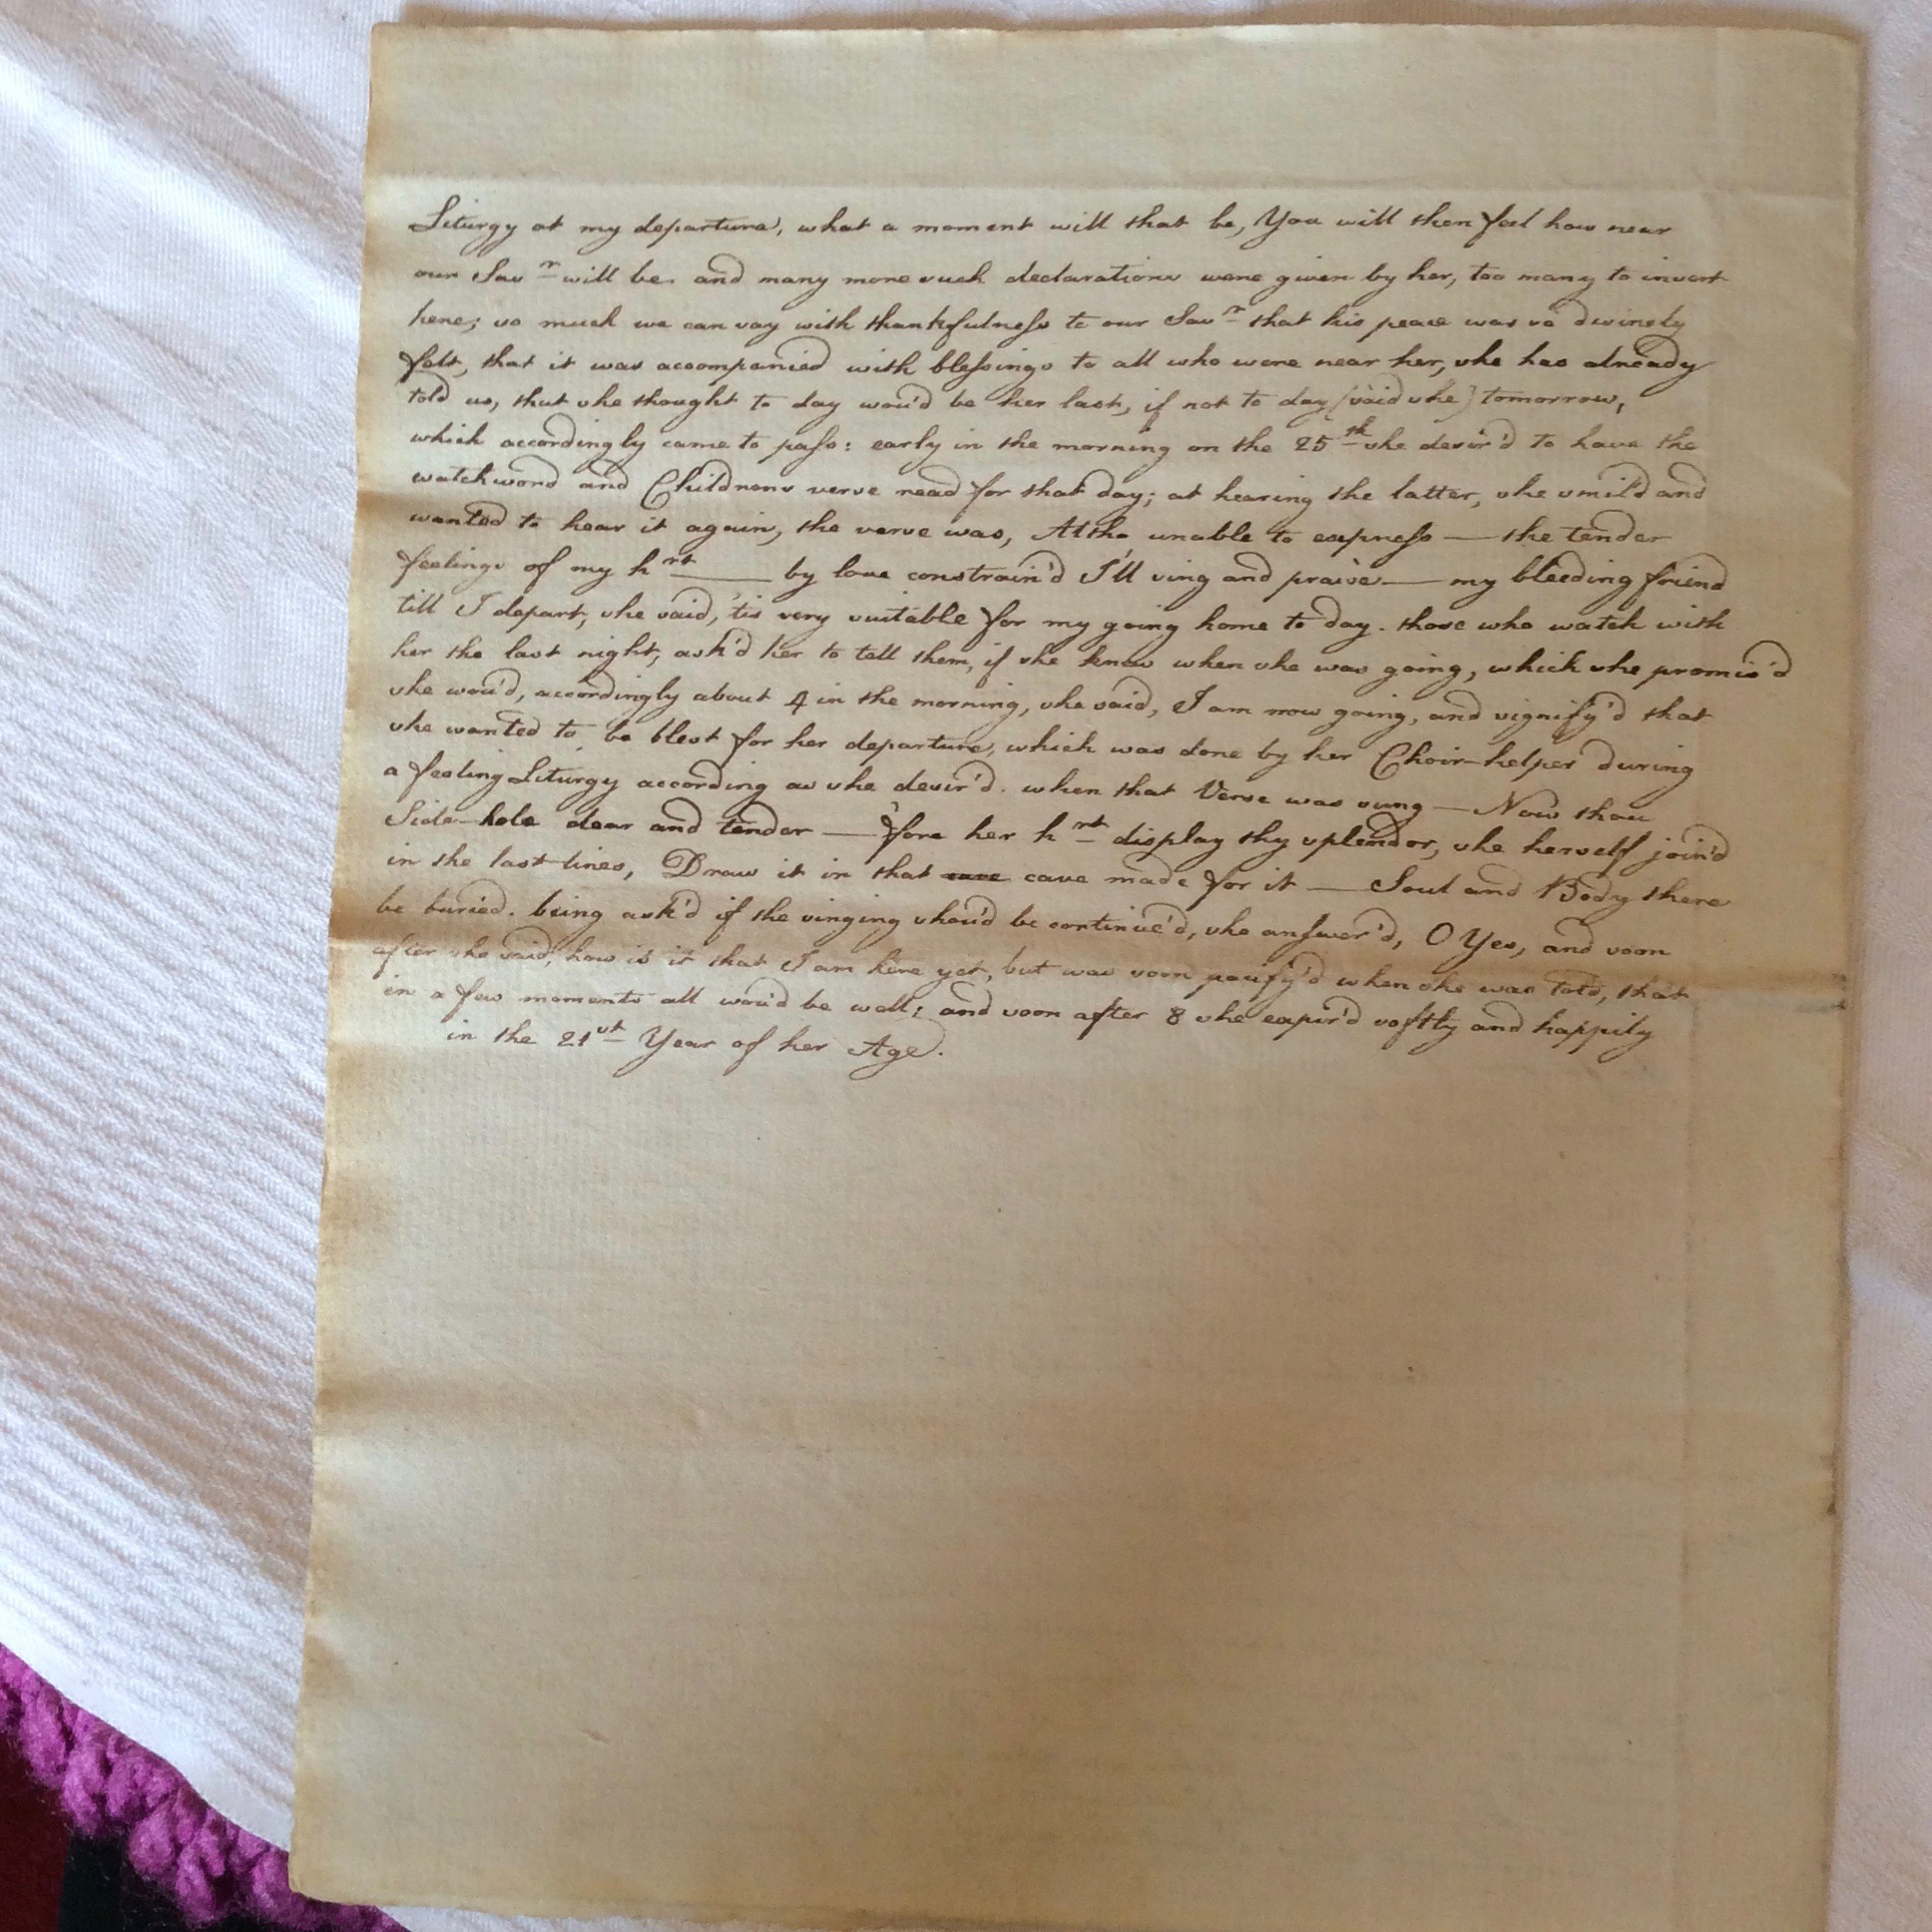 Liturgy at my departure, what a moment will that be, You will then feel how near
our Savr will be. and many more such declarations were given by her, too many to insert
here; so much we can say with thankfulness to our Savr that his peace was so divinely
felt, that it was accompanied with blessings to all who were near her, she has already
told us, that she thought to day wou'd be her last, if not to day (said she) tomorrow,
which accordingly came to pass: early in the morning on the 25th she desir'd to have the
watchword and Childrens verse read for that day; at hearing the latter, she smil'd and
wanted to hear it again, the verse was, Altho unable to express — the tender
feelings of my hrt — by love constrain'd I'll sing and praise — my bleeding friend
till I depart, she said, 'tis very suitable for my going home to day. those who watch with
her the last night, ask'd her to tell them, if she knew when she was going, which she promis'd
she wou'd, accordingly about 4 in the morning, she said, I am now going, and signify'd that
she wanted to be blest for her departure, which was done by her Choir-helper during
a feeling Liturgy according as she desir'd. when that Verse was sung — Now thou
Side-hole dear and tender — 'fore her hrt display thy splendor, she herself join'd
in the last lines, Draw it in that cave cave made for it — Soul and Body there
be buried. being ask'd if the singing shou'd be continue'd, she answer'd, O Yes, and soon
after she said, how is it that I am here yet, but was soon pacify'd when she was told, that
in a few moments all wou'd be well; and soon after 8 she expir'd softly and happily
in the 21st Year of her Age.